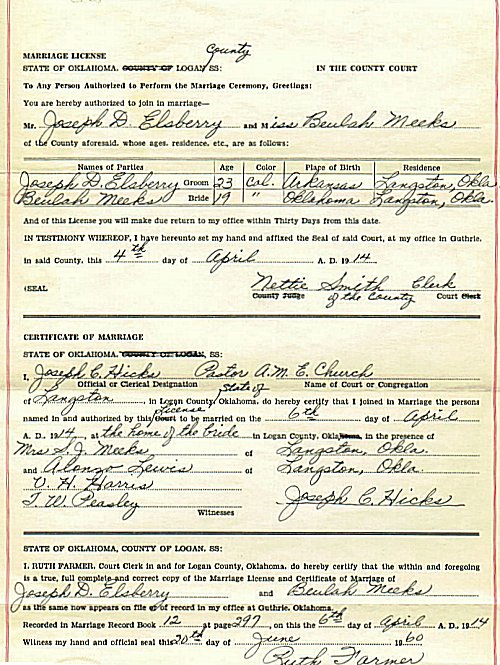 MARRIAGE LICENSE
County
STATE OF OKLAHOMA. COUNTY OF LOGAN, SS: IN THE COUNTY COURT
To Any Person Authorized to Perform the Marriage Ceremony, Greetings:
You are hereby authorized to join in marriage—
Mr. Joseph D. Elsberry and Miss Beulah Meeks
of the County aforesaid, whose ages, residence, etc., are as follows:
Names of Parties Age Color Place of Birth Residence
Joseph D. Elsberry Groom 23 Col. Arkansas Langston, Okla
Beulah Meeks Bride 19 " Oklahoma Langston, Okla.
And of this License you will make due return to my office within Thirty Days from this date.
IN TESTIMONY WHEREOF, I have hereunto set my hand and affixed the Seal of said Court, at my office in Guthrie,
in said County, this 4th day of April A. D. 1914
Nettie Smith Clerk
(SEAL County Judge of the County Court Clerk
CERTIFICATE OF MARRIAGE
STATE OF OKLAHOMA. COUNTY OF LOGAN, SS:
I, Joseph C. Hicks Pastor A. M. E. Church
Official or Clerical Designation Name of Court or Congregation
State of
of Langston, in Logan County, Oklahoma, do hereby certify that I joined in Marriage the persons
License
named in and authorized by this Court to be married on the 6th day of April
A. D. 1914, at the home of the bride in Logan County, Oklahoma, in the presence of
Mrs S. J. Meeks of Langston, Okla.
and Alonzo Lewis of Langston, Okla.
V. H. Harris
T. W. Peasley Joseph C. Hicks
Witnesses
STATE OF OKLAHOMA, COUNTY OF LOGAN, SS:
I, RUTH FARMER, Court Clerk in and for Logan County, Oklahoma, do hereby certify that the within and foregoing
is a true, full complete and correct copy of the Marriage License and Certificate of Marriage of
Joseph D. Elsberry and Beulah Meeks
as the same now appears on file of of record in my office at Guthrie, Oklahoma.
Recorded in Marriage Record Book 12 at page 297, on this the 6th day of April A. D., 1914
Witness my hand and official seal this 20th day of June 1960
Ruth Farmer